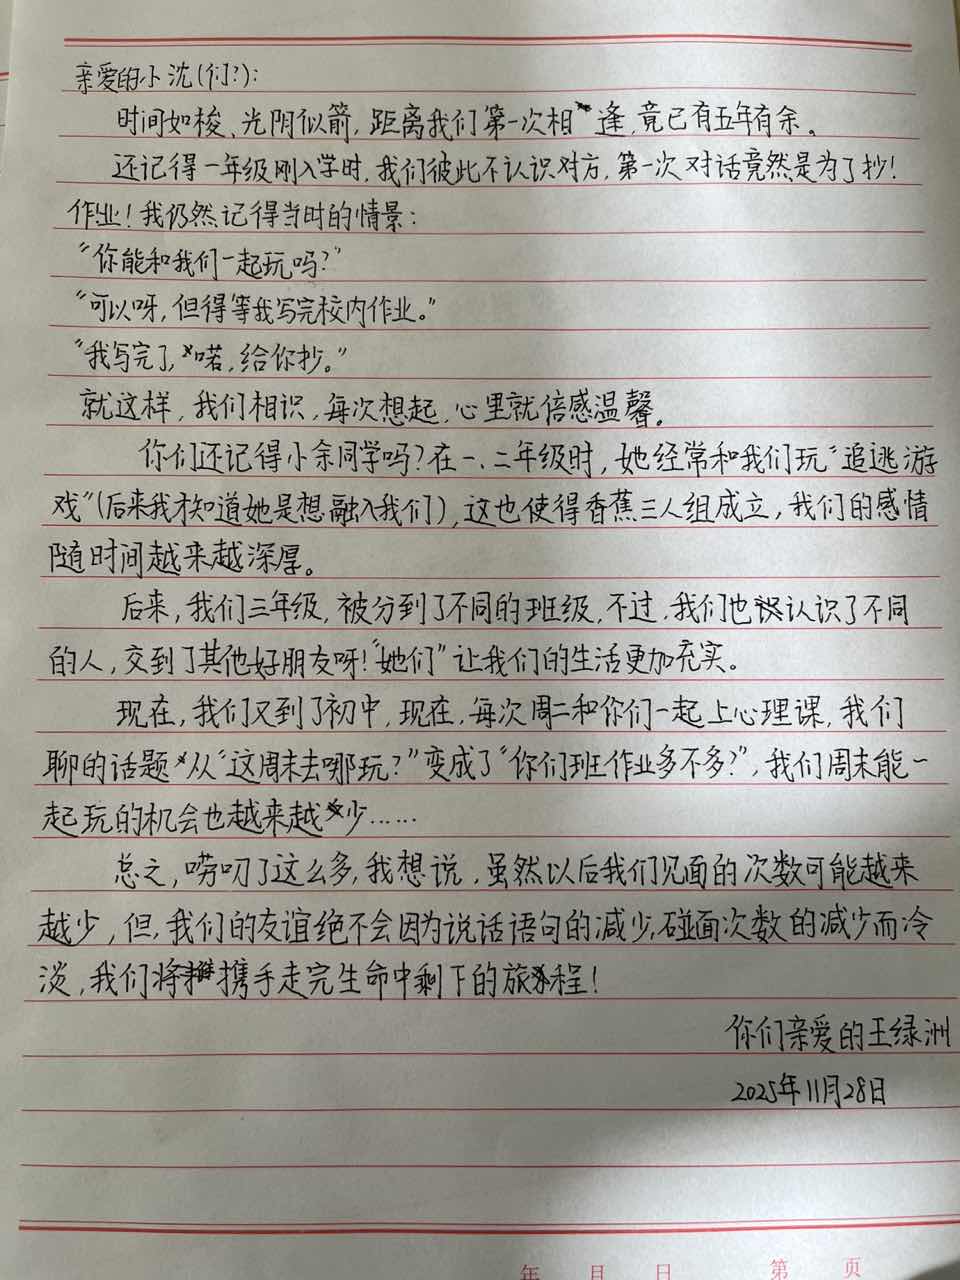 亲爱的小沈(们?):
时间如梭、光阴似箭,距离我们第一次相逢,竟已有五年有余。
还记得一年级刚入学时,我们彼此不认识对方,第一次对话竟然是为了抄!
作业!我仍然记得当时的情景:
“你能和我们一起玩吗?”
“可以呀,但得等我写完校内作业。”
“我写完了,喏,给你抄。”
就这样,我们相识,每次想起,心里就倍感温馨。
你们还记得小余同学吗?在一、二年级时,她经常和我们玩“追逃游
戏”(后来我才知道她是想融入我们),这也使得香蕉三人组成立,我们的感情
随时间越来越深厚。
后来,我们三年级,被分到了不同的班级,不过,我们也认识了不同
的人,交到了其他好朋友呀!“她们”让我们的生活更加充实。
现在,我们又到了初中,现在,每次周二和你们一起上心理课,我们
聊的话题从“这周末去哪玩?”变成了“你们班作业多不多?”,我们周末能一
起玩的机会也越来越少……
总之,唠叨了这么多,我想说,虽然以后我们见面的次数可能越来
越少,但,我们的友谊绝不会因为说话语句的减少,碰面次数的减少而冷
淡,我们将携手走完生命中剩下的旅程!
你们亲爱的王绿洲
2025年11月28日
年 月 日 第 页